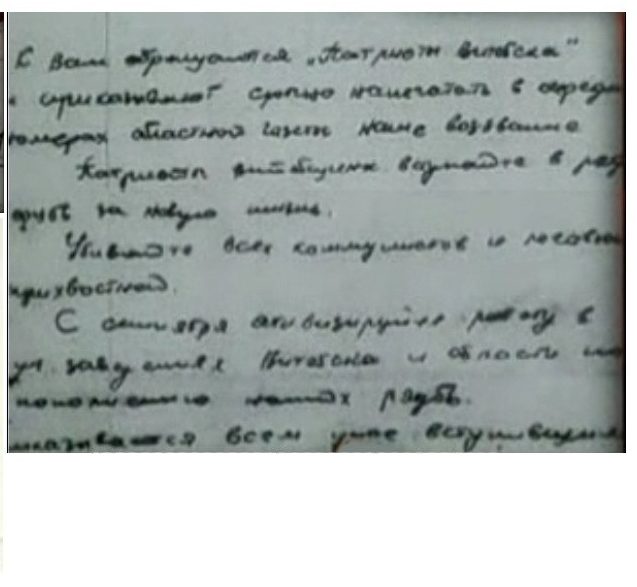 К Вам обращаются „Патриоты Витебска"
и приказывают срочно напечатать в очеред
номерах областной газеты наше воззвание
Патриоты Витебщины вступайте в ряд
борьбы за новую жизнь.
Убивайте всех коммунистов и их
прихвостней.
С сентября активизируйте работу в
уч. заведениях Витебска и области по
пополнению наших рядов.
всем уже вступившим